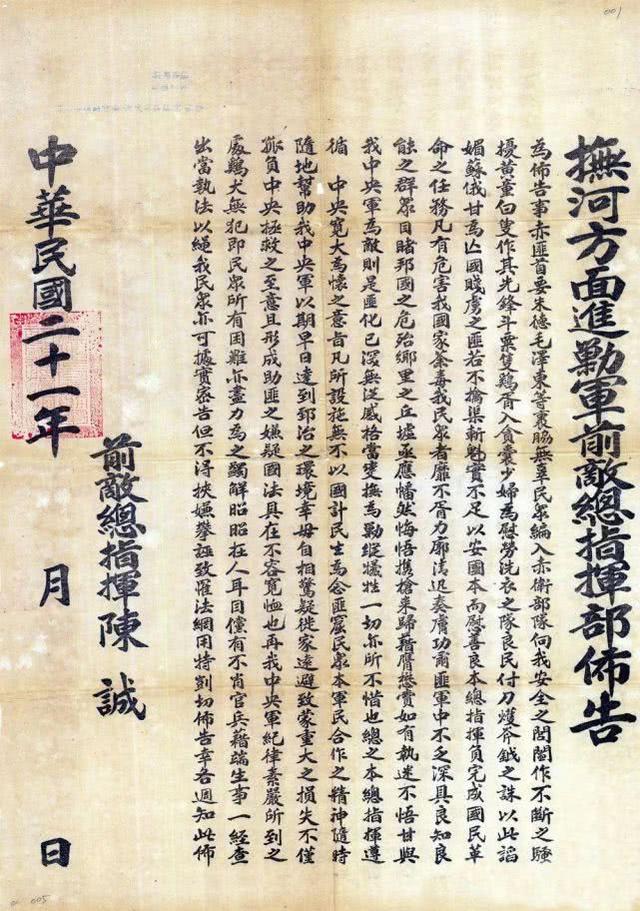 撫河方面進勦軍前敵總指揮部佈告
為佈告事赤匪首要朱德毛澤東等裹脇無辜民眾編入赤衛部隊向我安全之閭閻作不斷之騷
擾黃童白叟作其先鋒斗粟隻鷄胥入貪囊少婦為慰勞洗衣之隊良民付刀鑊斧鉞之誅以此諂
媚蘇俄甘為亾國賤虜之匪若不擒渠斬魁實不足以安國本而慰善良本總指揮負完成國民革
命之任務凡有危害我國家荼毒我民眾者靡不胥力廓清迅奏膚功爾匪軍中不乏深具良知良
能之群眾目睹邦國之危殆鄉里之丘墟亟應幡然悔悟携槍來歸藉膺懋賞如有執迷不悟甘與
我中央軍為敵則是匪化已深無從感格當變撫為勦縱犧牲一切亦所不惜也總之本總指揮遵
循 中央寬大為懷之意旨凡所設施無不以國計民生為念匪窟民眾本軍民合作之精神隨時
隨地幫助我中央軍以期早日達到郅治之環境幸毋自相驚疑徙家遠避致蒙重大之損失不僅
孤負中央拯救之至意且形成助匪之嫌疑國法具在不容寬恤也再我中央軍紀律素嚴所到之
處鷄犬無犯即民眾所有困難亦盡力為之蠲解昭昭在人耳目儻有不肖官兵藉端生事一經查
出當執法以繩我民眾亦可據實密告但不得挾嫌攀誣致罹法網用特剴切佈告幸各週知此佈
前敵總指揮陳誠
中華民國二十一年 月 日
001
005